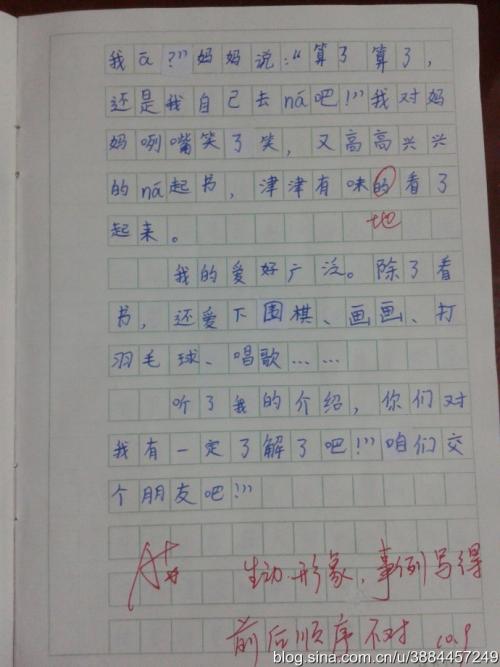 我ā?”妈妈说：“算了算了，
还是我自己去ná吧！”我对妈
妈咧嘴笑了笑，又高高兴兴
的ná起书，津津有味的看了
地
起来。
我的爱好广泛。除了看
书，还爱下围棋、画画、打
羽毛球、唱歌……
听了我的介绍，你们对
我有一定了解了吧！”咱们交
个朋友吧！”
A+
生动形象，事例写得
前后顺序不对 10.9
blog.sina.com.cn/u/3884457249